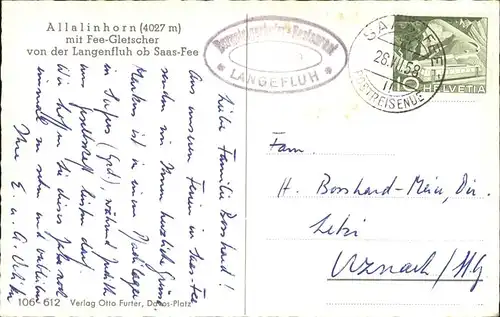 Allalinhorn (4027 m)
mit Fee-Gletscher
von der Langenfluh ob Saas-Fee
* LANGEFLUH *
SAAS-FEE
26.VII.58
POSTREISENDE
10 HELVETIA
Liebe Familie Bosshard!
Aus unseren Ferien in Saas-Fee
senden wir Ihnen herzliche Grüsse.
Markus ist in einem Pfadilager
in (Grb), während Judith
uns Gesellschaft leisten darf.
Wir hoffen Sie dieses Jahr noch
einmal zu sehen und verbleiben
Ihre E. u. A.
Fam.
H. Bosshard-Meier, Dir.
Letzi
Uznach / SG
106-612 Verlag Otto Furter, Davos-Platz